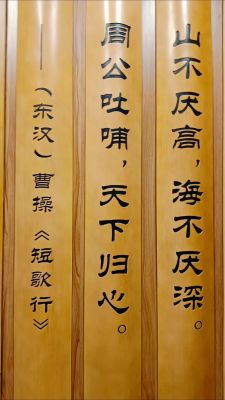 山不厌高，海不厌深。
周公吐哺，天下归心。
——（东汉）曹操《短歌行》